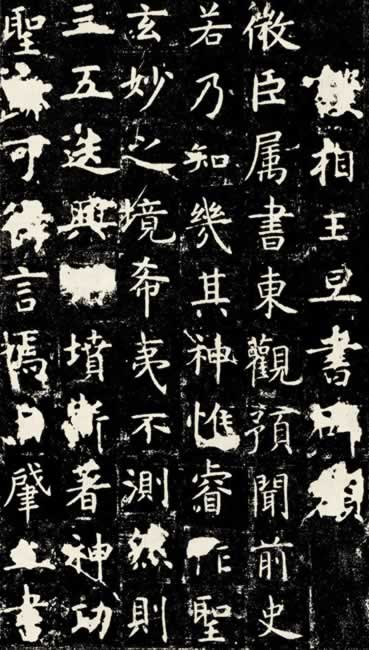 撰相王旦書碑額
微臣属書東觀預聞前史
若乃知幾其神惟睿作聖
玄妙之境希夷不測然則
三五迭興墳斯著神功
聖迹可得言焉自肇立書